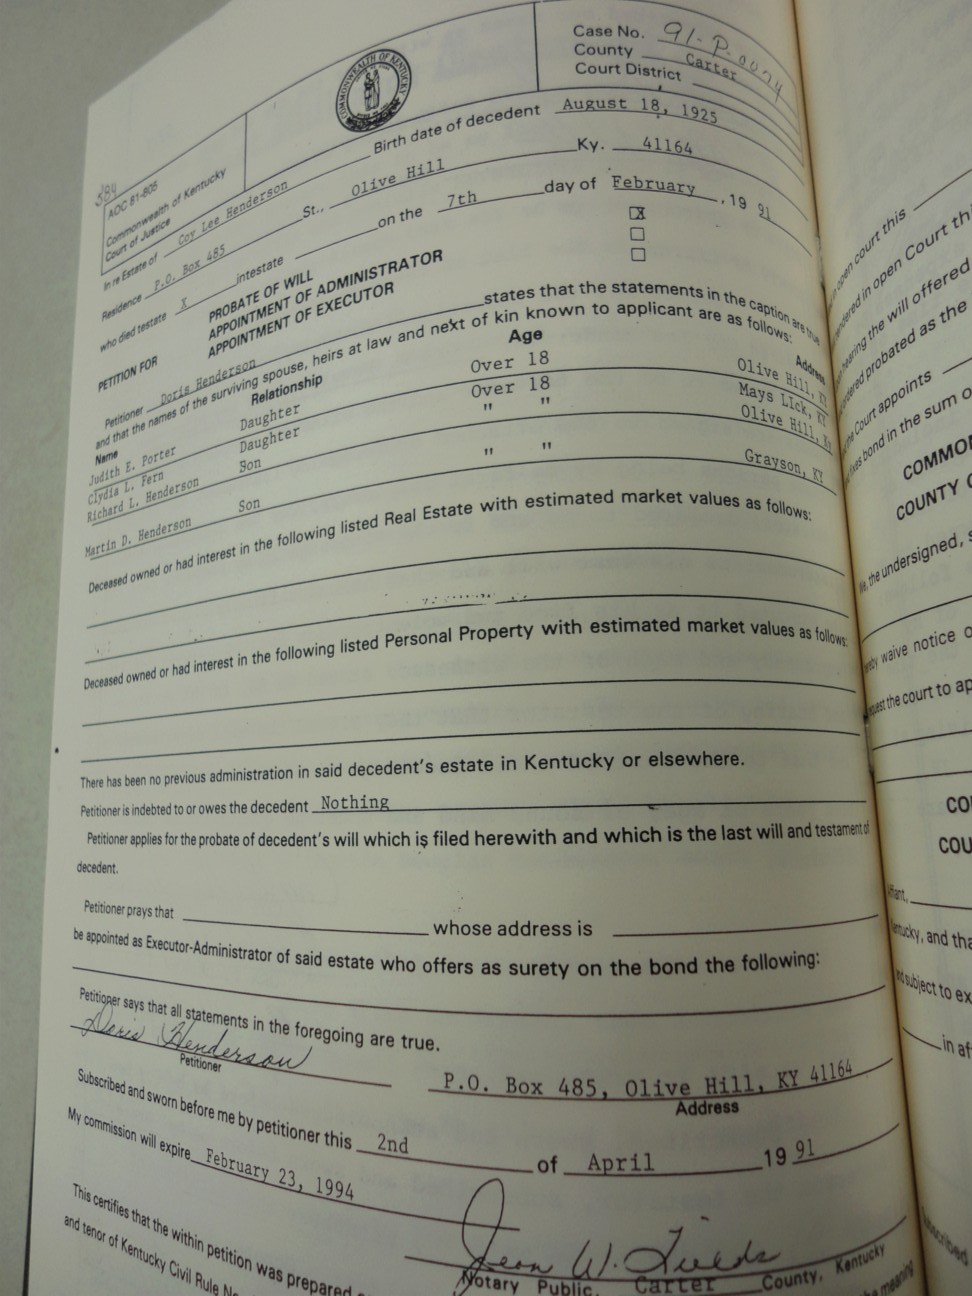 384
AOC 81-805
Commonwealth of Kentucky
Court of Justice
COMMONWEALTH OF KENTUCKY
Case No. 91-P-0074
County Carter
Court District
In re Estate of Coy Lee Henderson Birth date of decedent August 18, 1925
Residence P.O. Box 485 St., Olive Hill Ky. 41164
who died testate X intestate on the 7th day of February, 19 91
PETITION FOR
PROBATE OF WILL X
APPOINTMENT OF ADMINISTRATOR
APPOINTMENT OF EXECUTOR
Petitioner Doris Henderson states that the statements in the caption are true
and that the names of the surviving spouse, heirs at law and next of kin known to applicant are as follows:
Name Relationship Age Address
Judith E. Porter Daughter Over 18 Olive Hill, KY
Clydia L. Fern Daughter Over 18 Mays LIck, KY
Richard L. Henderson Son " " Olive Hill, Ky
Martin D. Henderson Son " " Grayson, KY
Deceased owned or had interest in the following listed Real Estate with estimated market values as follows:
Deceased owned or had interest in the following listed Personal Property with estimated market values as follows:
There has been no previous administration in said decedent's estate in Kentucky or elsewhere.
Petitioner is indebted to or owes the decedent Nothing
Petitioner applies for the probate of decedent's will which is filed herewith and which is the last will and testament of
decedent.
Petitioner prays that whose address is
be appointed as Executor-Administrator of said estate who offers as surety on the bond the following:
Petitioner says that all statements in the foregoing are true.
Doris Henderson
Petitioner
P.O. Box 485, Olive Hill, KY 41164
Address
Subscribed and sworn before me by petitioner this 2nd of April 19 91
My commission will expire February 23, 1994
Jean W. Fields
Notary Public, Carter County, Kentucky
This certifies that the within petition was prepared
and tenor of Kentucky Civil Rule
the meaning
in open court this
in open Court
hearing the will offered
ordered probated as the
the Court appoints
fixes bond in the sum
COMMON
COUNTY
We, the undersigned,
waive notice
request the court to
CO
COU
Affiant,
and tha
and subject to ex
in af